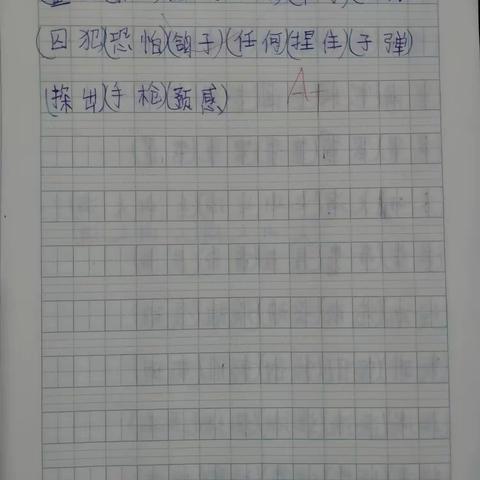 (囚犯)(恐怕)(鸽子)(任何)(捏住)(子弹)
(探出)(手枪)(预感)
A+